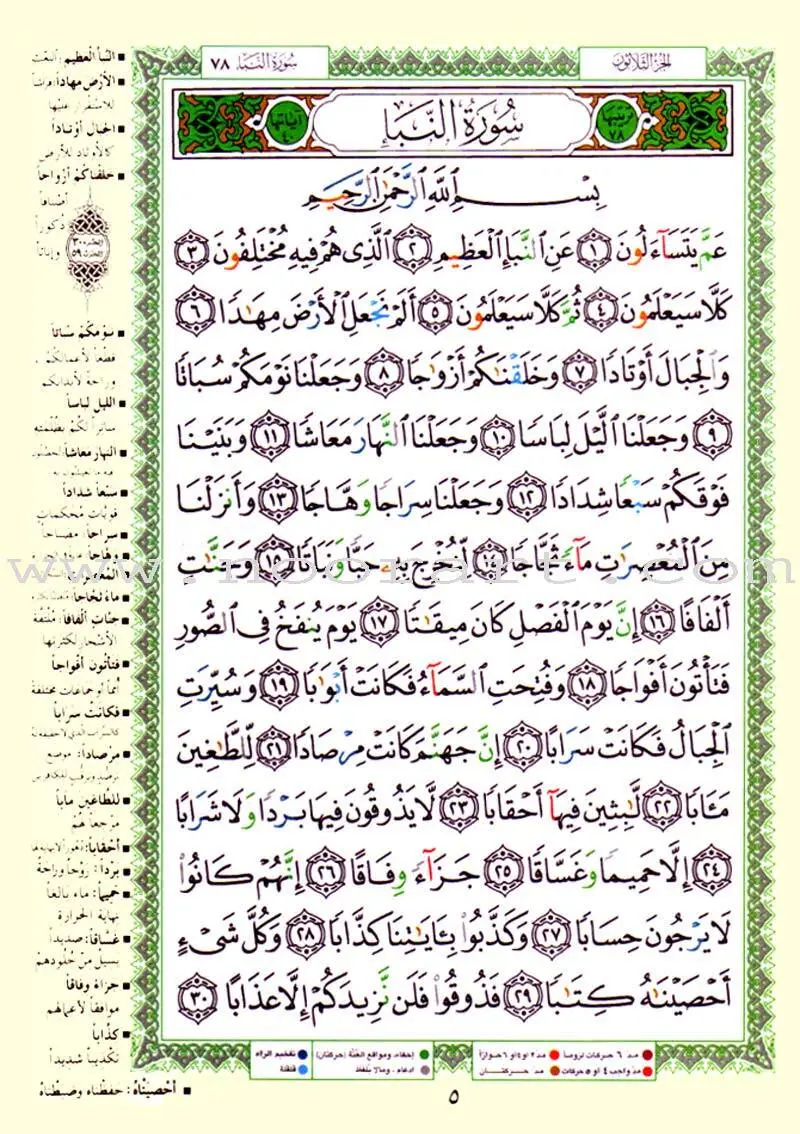 الجزء الثلاثون
سورة النبإ ٧٨
ترتيبها ٧٨
سُورَةُ النَّبَإِ
آياتها ٤٠
بِسْمِ اللَّهِ الرَّحْمَٰنِ الرَّحِيمِ
عَمَّ يَتَسَآءَلُونَ ١ عَنِ النَّبَإِ الْعَظِيمِ ٢ الَّذِى هُمْ فِيهِ مُخْتَلِفُونَ ٣
كَلَّا سَيَعْلَمُونَ ٤ ثُمَّ كَلَّا سَيَعْلَمُونَ ٥ أَلَمْ نَجْعَلِ الْأَرْضَ مِهَٰدًا ٦
وَالْجِبَالَ أَوْتَادًا ٧ وَخَلَقْنَٰكُمْ أَزْوَٰجًا ٨ وَجَعَلْنَا نَوْمَكُمْ سُبَاتًا
٩ وَجَعَلْنَا الَّيْلَ لِبَاسًا ١٠ وَجَعَلْنَا النَّهَارَ مَعَاشًا ١١ وَبَنَيْنَا
فَوْقَكُمْ سَبْعًا شِدَادًا ١٢ وَجَعَلْنَا سِرَاجًا وَهَّاجًا ١٣ وَأَنزَلْنَا
مِنَ الْمُعْصِرَٰتِ مَآءً ثَجَّاجًا ١٤ لِّنُخْرِجَ بِهِۦ حَبًّا وَنَبَاتًا ١٥ وَجَنَّٰتٍ
أَلْفَافًا ١٦ إِنَّ يَوْمَ الْفَصْلِ كَانَ مِيقَٰتًا ١٧ يَوْمَ يُنفَخُ فِى الصُّورِ
فَتَأْتُونَ أَفْوَاجًا ١٨ وَفُتِحَتِ السَّمَآءُ فَكَانَتْ أَبْوَٰبًا ١٩ وَسُيِّرَتِ
الْجِبَالُ فَكَانَتْ سَرَابًا ٢٠ إِنَّ جَهَنَّمَ كَانَتْ مِرْصَادًا ٢١ لِّلطَّٰغِينَ
مَـَٔابًا ٢٢ لَّٰبِثِينَ فِيهَآ أَحْقَابًا ٢٣ لَّا يَذُوقُونَ فِيهَا بَرْدًا وَلَا شَرَابًا
٢٤ إِلَّا حَمِيمًا وَغَسَّاقًا ٢٥ جَزَآءً وِفَاقًا ٢٦ إِنَّهُمْ كَانُوا
لَا يَرْجُونَ حِسَابًا ٢٧ وَكَذَّبُوا بِـَٔايَٰتِنَا كِذَّابًا ٢٨ وَكُلَّ شَىْءٍ
أَحْصَيْنَٰهُ كِتَٰبًا ٢٩ فَذُوقُوا فَلَن نَّزِيدَكُمْ إِلَّا عَذَابًا ٣٠
النبأ العظيم: البعث
الأرض مهادا: فراشا
للاستقرار عليها
الجبال أوتادا
كالأوتاد للأرض
خلقناكم أزواجا
أصنافا
ذكورا
وإناثا
الحزب ٥٩
نومكم سباتا
قطعا لأعمالكم،
وراحة لأبدانكم
الليل لباسا
ساترا لكم بظلمته
النهار معاشا:
سبعا شدادا
قويات محكمات
سراجا: مصباحا
وهاجا:
ماء ثجاجا:
جنات ألفافا: ملتفة
الأشجار لكثرتها
فتأتون أفواجا
أمما أو جماعات مختلفة
فكانت سرابا
مرصادا: موضع
للطاغين مآبا
مرجعا لهم
أحقابا:
بردا: روحا وراحة
حميما: ماء بالغا
نهاية الحرارة
غساقا: صديدا
يسيل من جلودهم
جزاء وفاقا
موافقا لأعمالهم
كذابا
تكذيبا شديدا
أحصيناه: حفظناه وضبطناه
مد ٦ حركات لزوما مد ٢ او ٤ او ٦ جوازا إخفاء، ومواقع الغنة (حركتان) تفخيم الراء
مد واجب ٤ او ٥ حركات مد حركتان ادغام، ومالا يلفظ قلقلة
٥
www.noorart.com